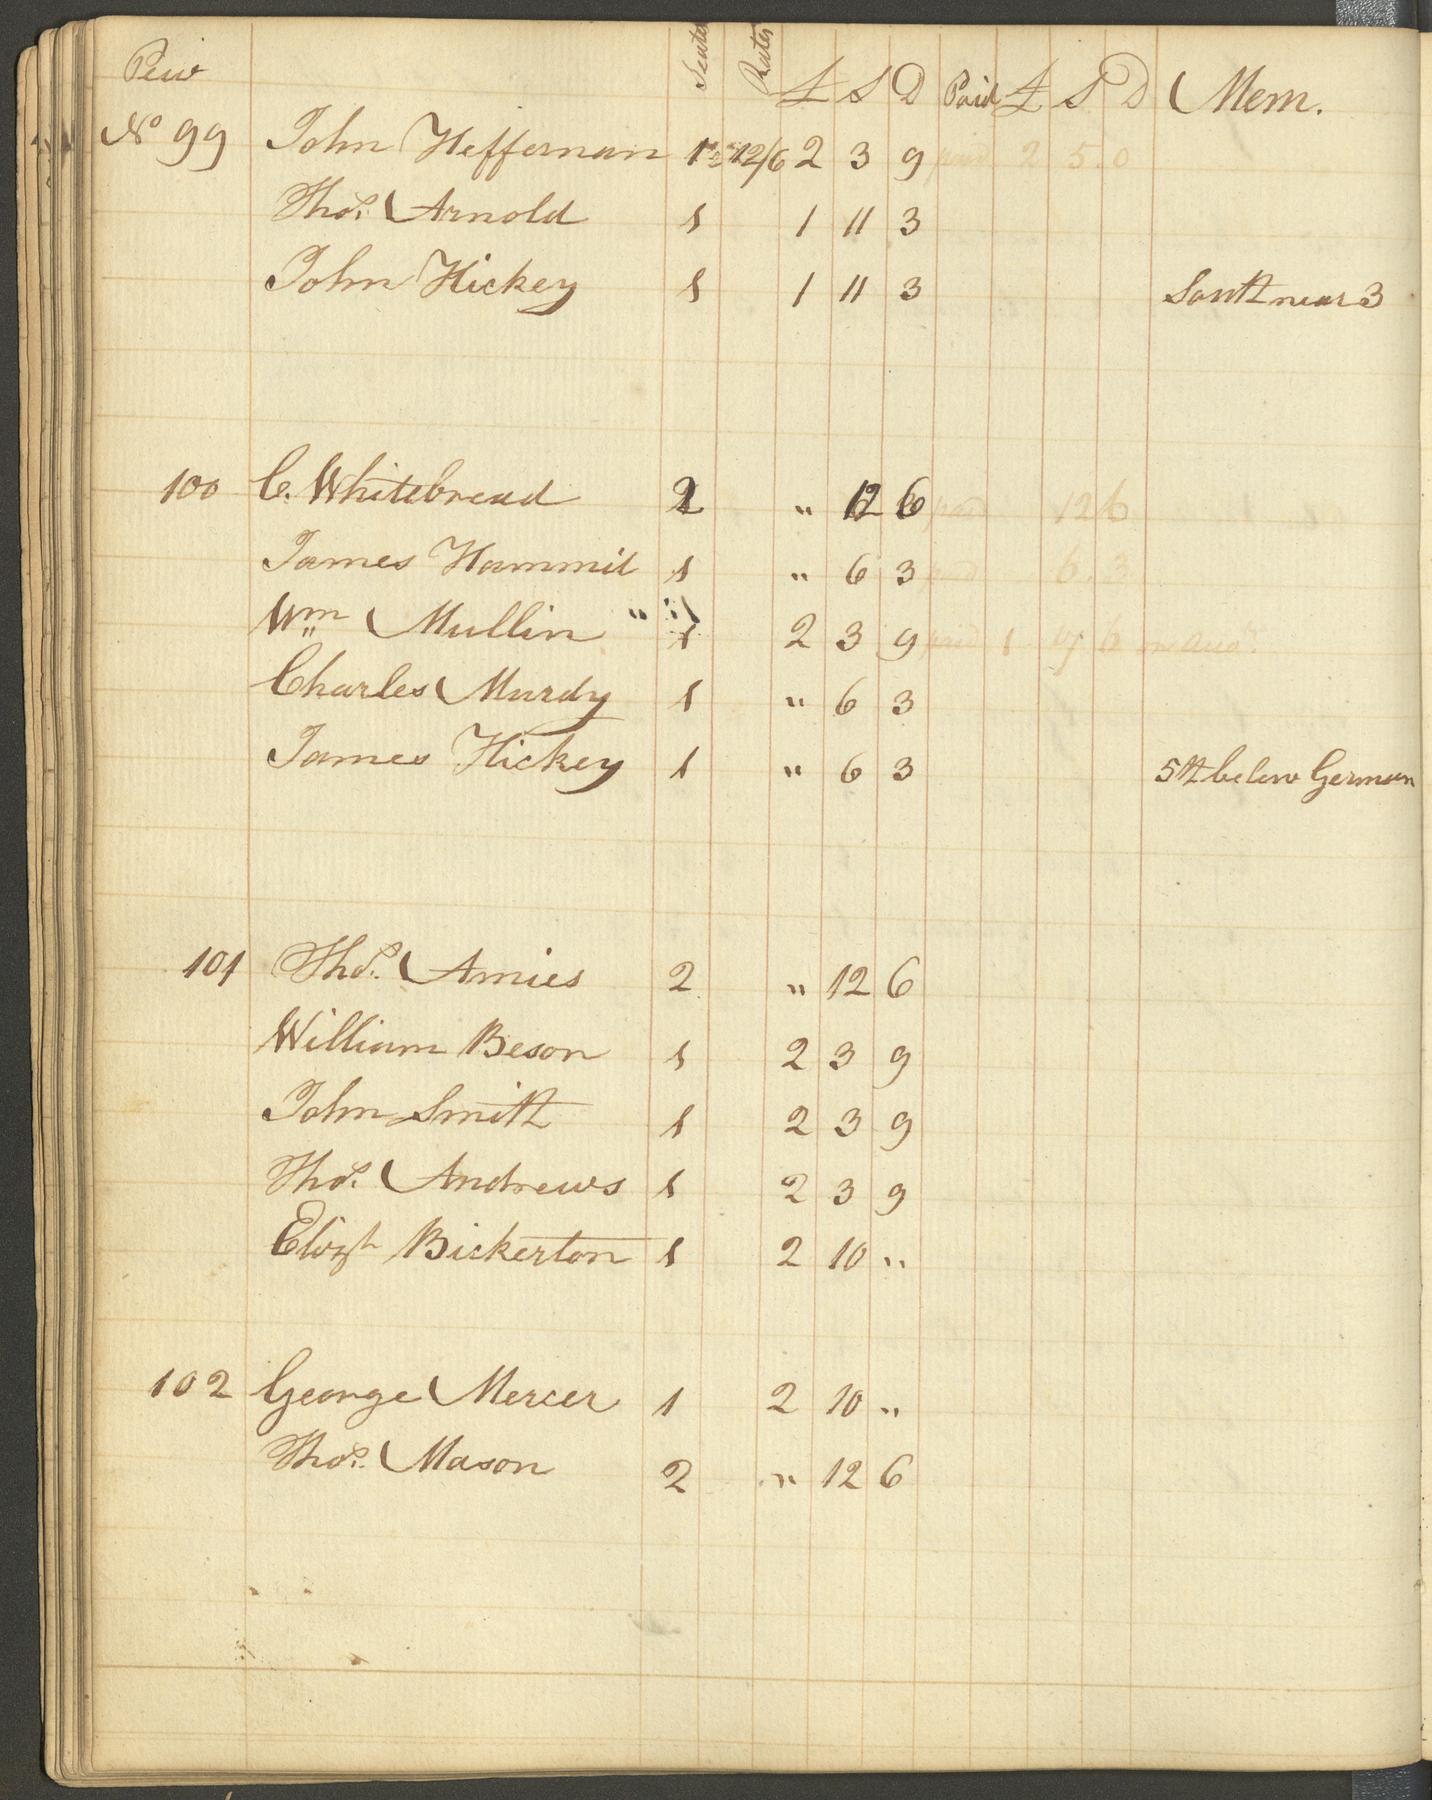 Pew Seats Rates £ S D Paid £ S D Mem.
No 99 John Heffernan 1 12/6 2 3 9 paid 2 5.0
Thos. Arnold 1 1 11 3
John Hickey 1 1 11 3 South near 3
100 C. Whitebread 2 " 12 6 paid 12 6
James Hammit 1 " 6 3 paid 6.3
Wm Mullin " 1 2 3 9 paid 1
Charles Murdy 1 " 6 3
James Hickey 1 " 6 3 5th below German
101 Thos. Amies 2 " 12 6
William Beson 1 2 3 9
John Smith 1 2 3 9
Thos. Andrews 1 2 3 9
Elizth Bickerton 1 2 10 "
102 George Mercer 1 2 10 "
Thos. Mason 2 " 12 6